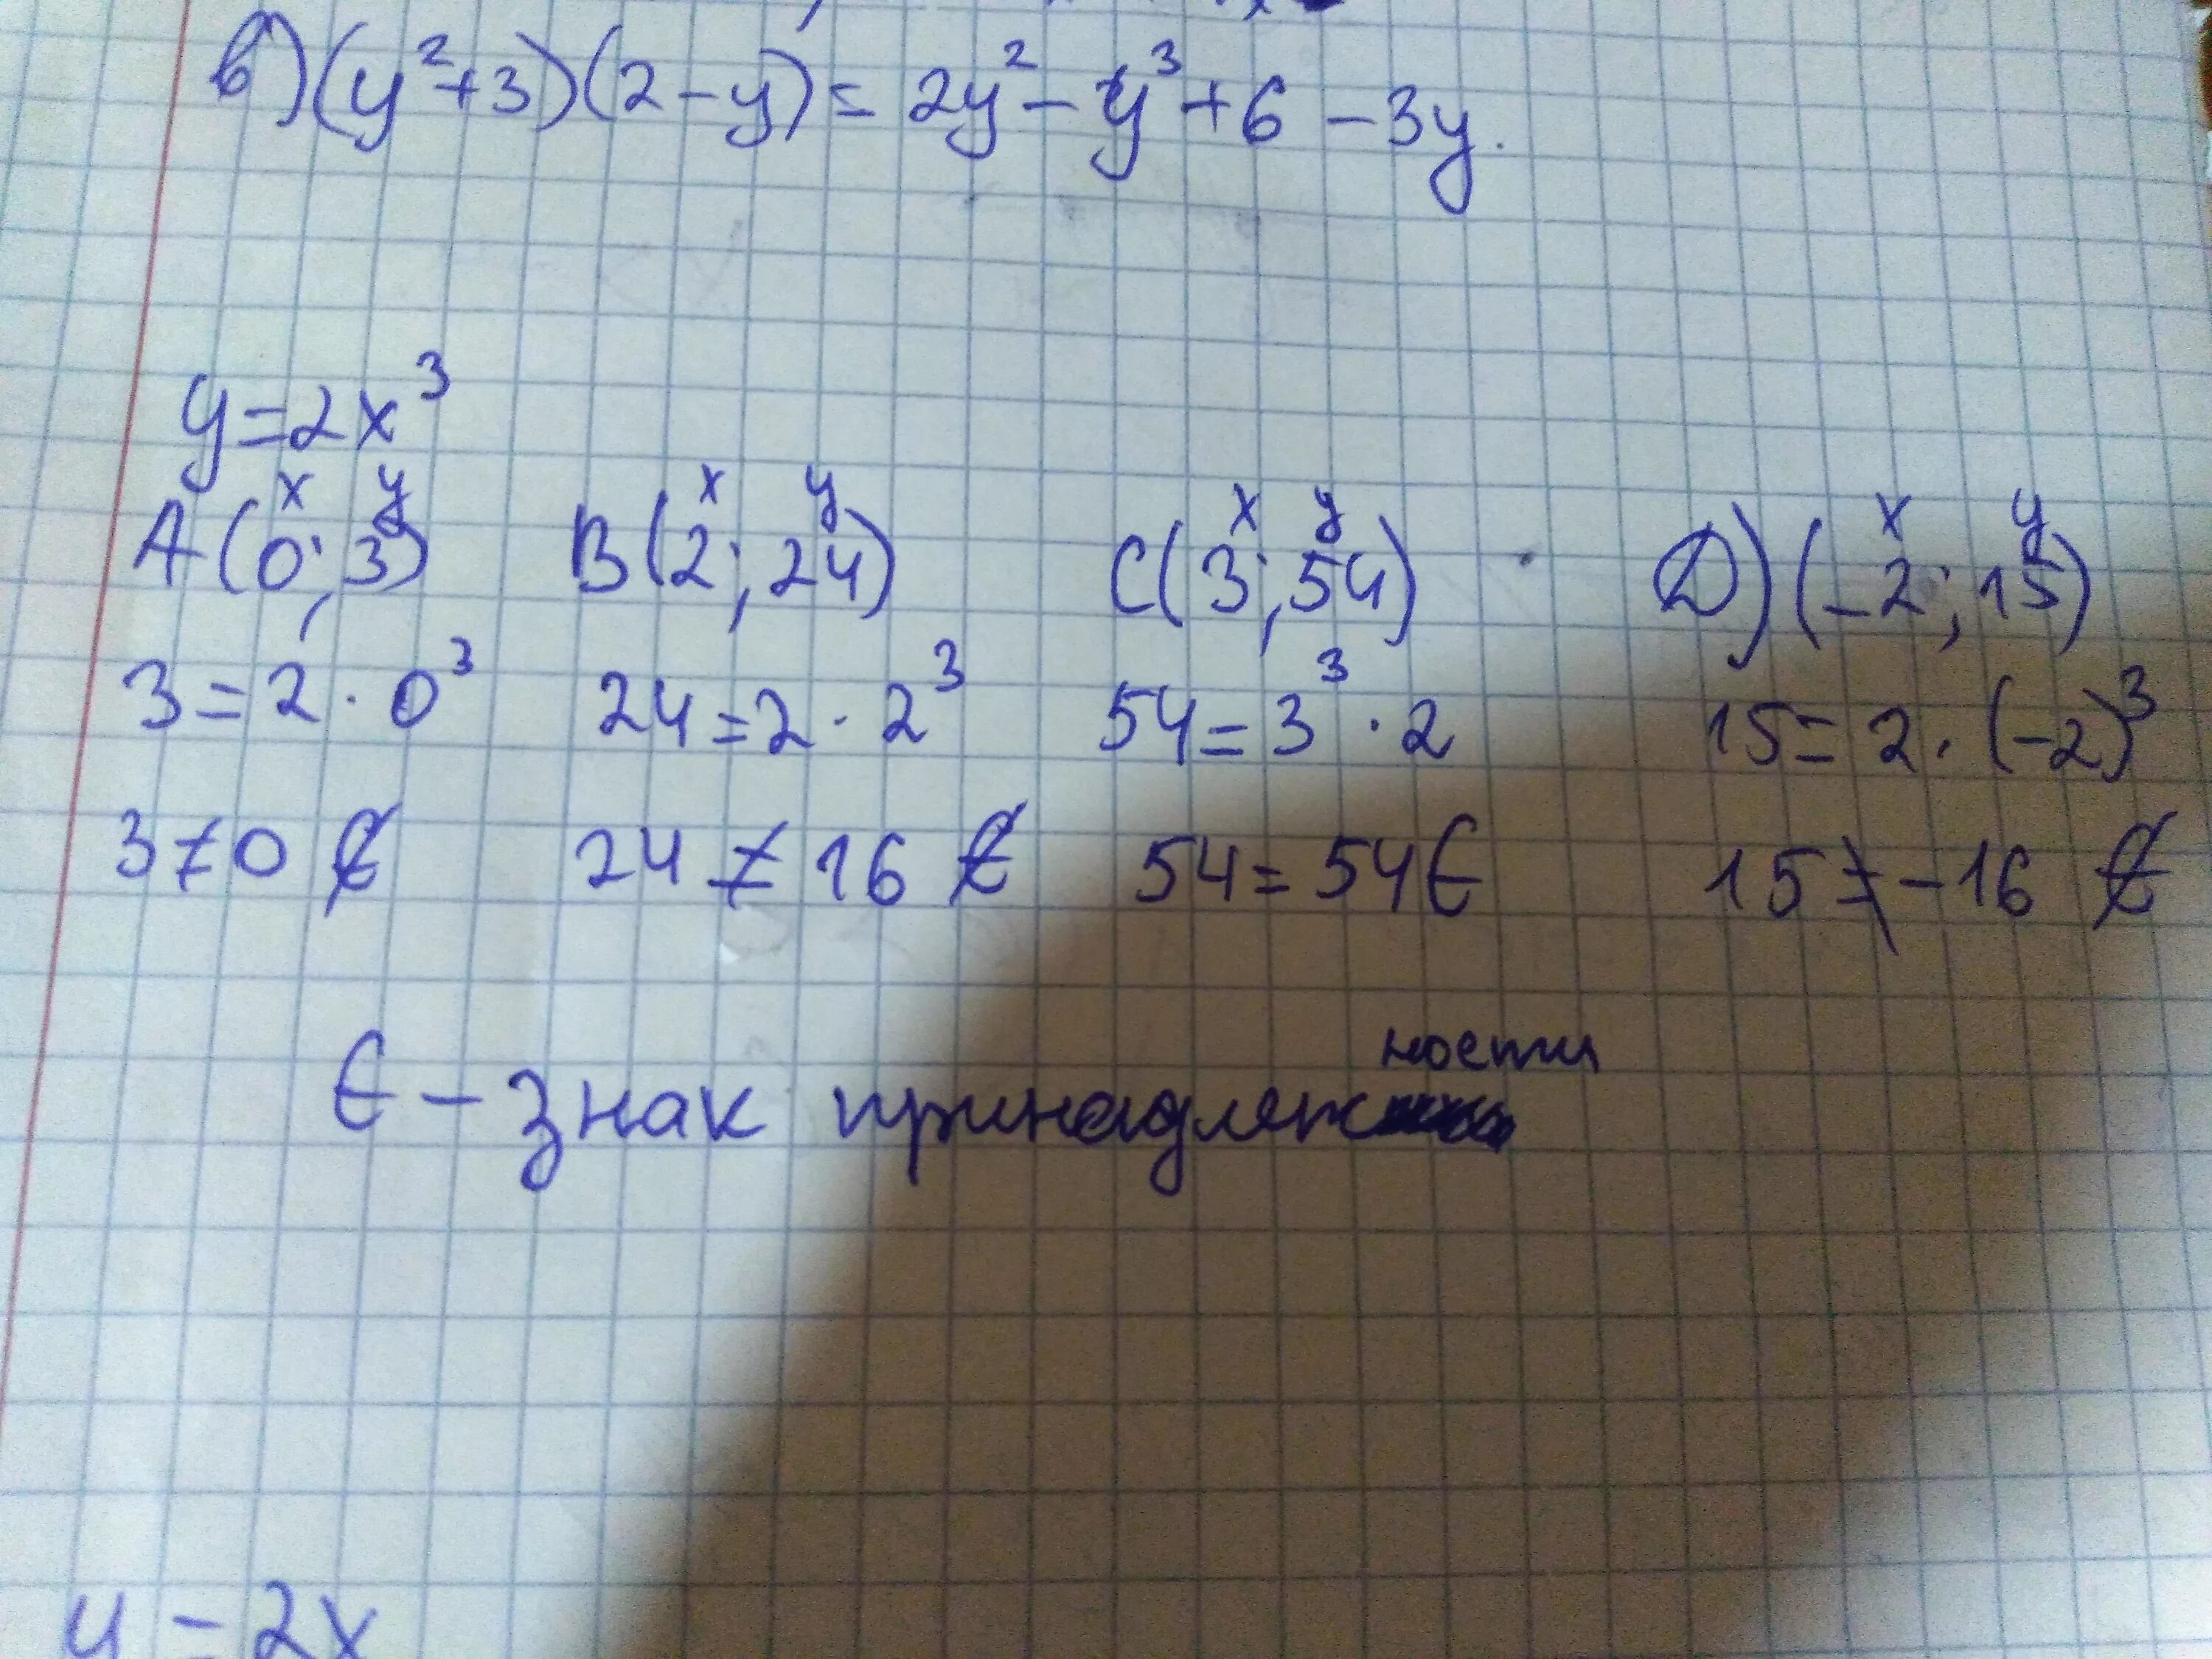 в) (y²+3)(2-y)= 2y²-y³+6-3y.
y=2x³
x y x y x y x y
A(0;3) B(2;24) C(3;54) D)(-2;15)
3=2·0³ 24=2·2³ 54=3³·2 15=2·(-2)³
3≠0 ∉ 24≠16 ∉ 54=54∈ 15≠-16 ∉
∈ - знак принадлежности
y=2x